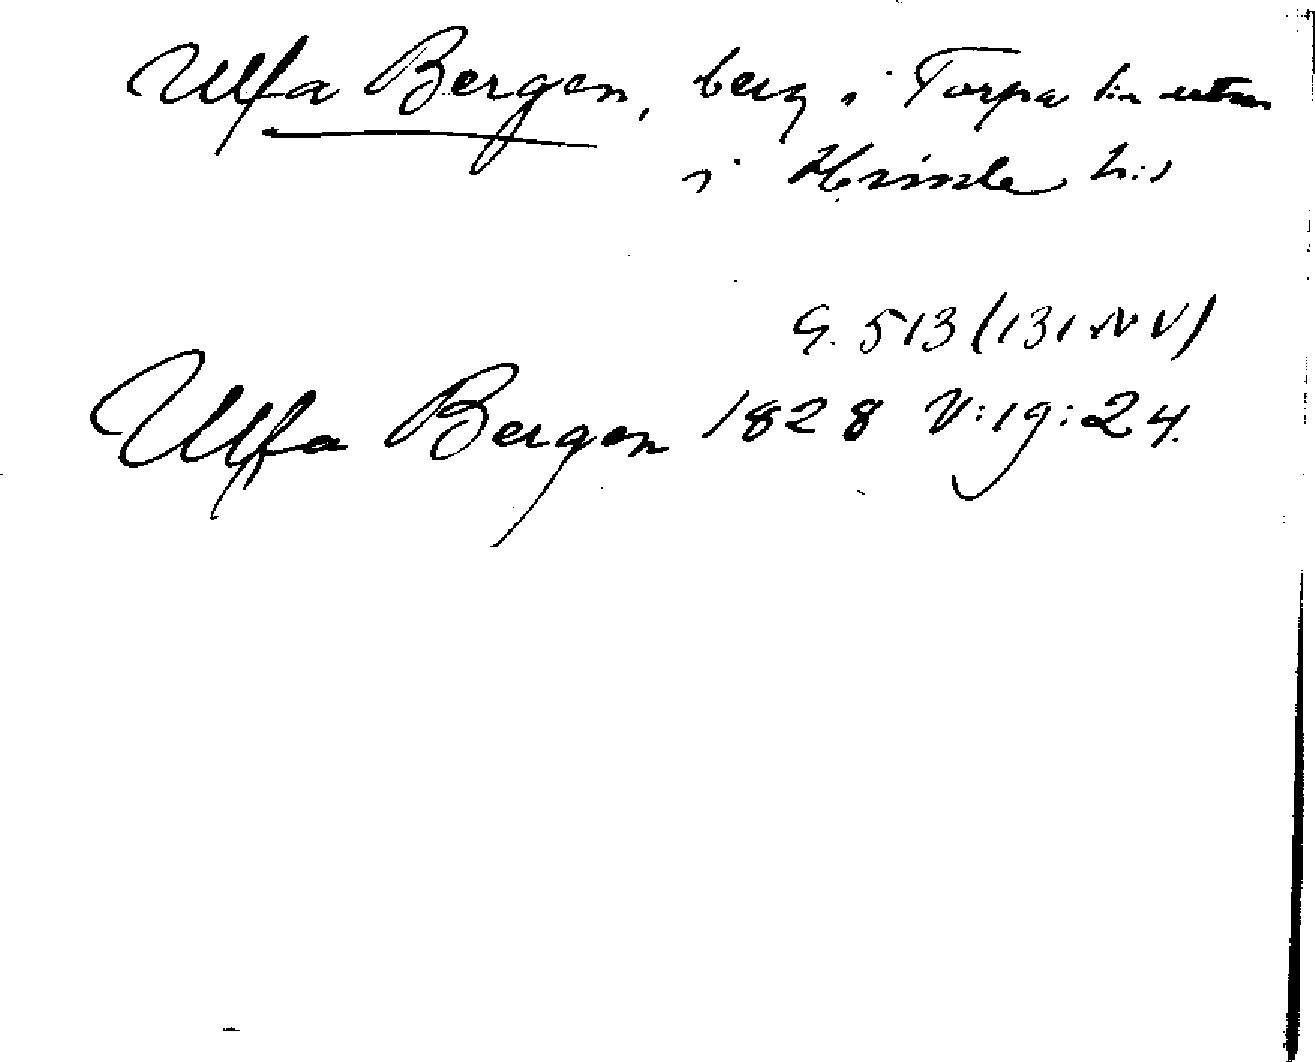 Ulfa Bergen, berg i Torpa
i Hz
G. 513 (131 NV)
Ulfa Bergen 1828 V:19:24.